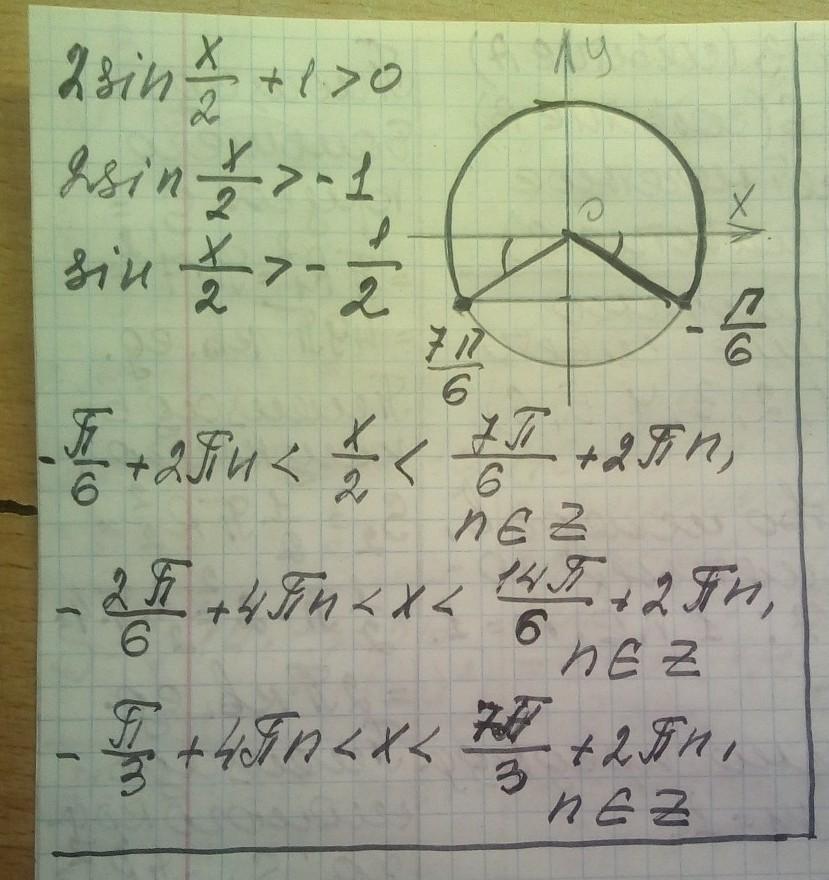 2sin x/2 + 1 > 0
2sin x/2 > -1
sin x/2 > - 1/2
y
0
x
7π/6
- π/6
- π/6 + 2πn < x/2 < 7π/6 + 2πn,
n ∈ Z
- 2π/6 + 4πn < x < 14π/6 + 2πn,
n ∈ Z
- π/3 + 4πn < x < 7π/3 + 2πn,
n ∈ Z